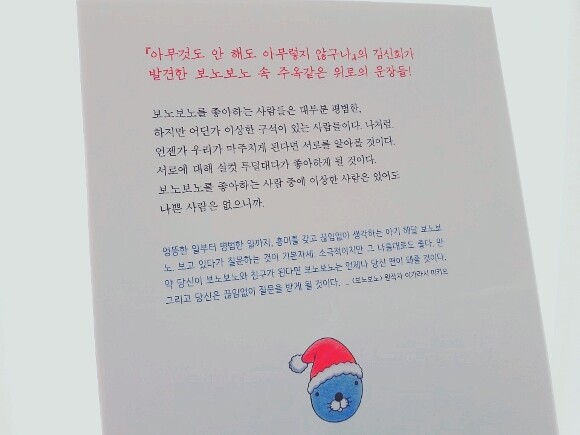 『아무것도 안 해도 아무렇지 않구나』의 김신회가
발견한 보노보노 속 주옥같은 위로의 문장들!
보노보노를 좋아하는 사람들은 대부분 평범한,
하지만 어딘가 이상한 구석이 있는 사람들이다. 나처럼.
언젠가 우리가 마주치게 된다면 서로를 알아볼 것이다.
서로에 대해 실컷 투덜대다가 좋아하게 될 것이다.
보노보노를 좋아하는 사람 중에 이상한 사람은 있어도
나쁜 사람은 없으니까.
엉뚱한 일부터 평범한 일까지, 흥미를 갖고 끊임없이 생각하는 아기 해달 보노보
노. 보고 있다가 질문하는 것이 기본자세. 소극적이지만 그 나름대로도 좋다. 만
약 당신이 보노보노와 친구가 된다면 보노보노는 언제나 당신 편이 돼줄 것이다.
그리고 당신은 끊임없이 질문을 받게 될 것이다. _ 〈보노보노〉 원작자 이가라시 미키오